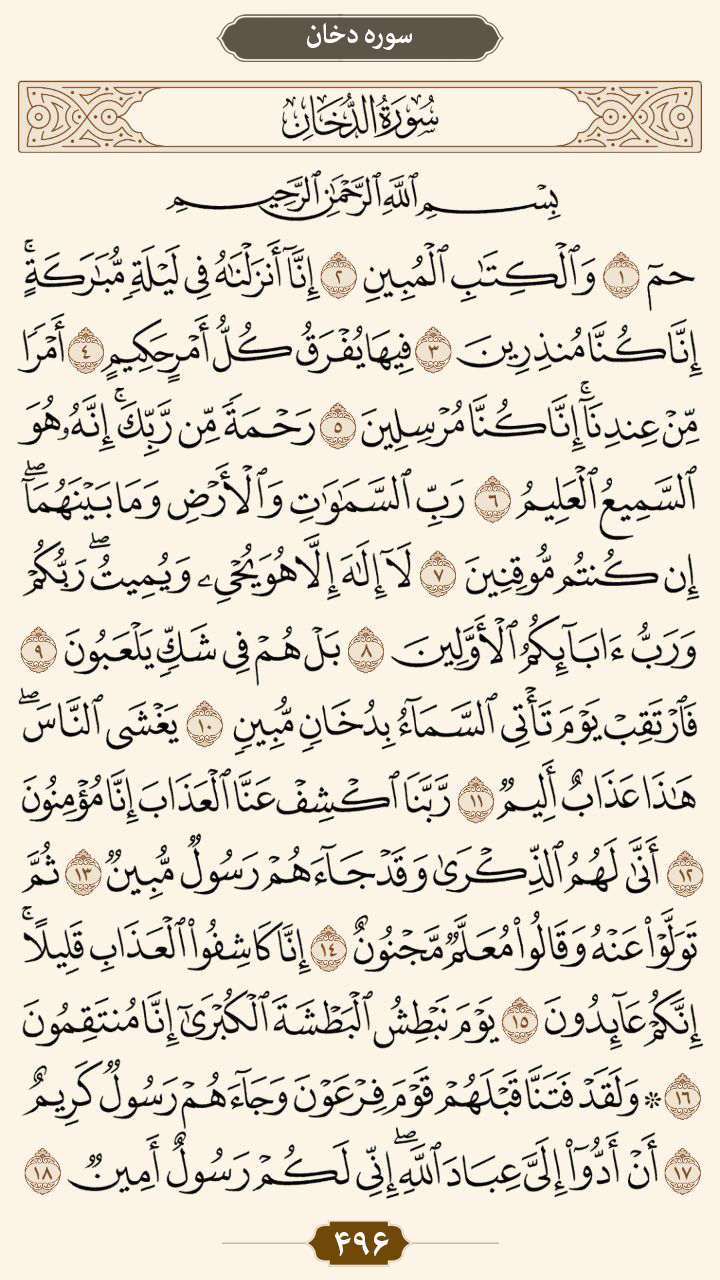 سوره دخان
سُورَةُ الدُّخَانِ
بِسْمِ ٱللَّهِ ٱلرَّحْمَٰنِ ٱلرَّحِيمِ
حمٓ ١ وَٱلْكِتَٰبِ ٱلْمُبِينِ ٢ إِنَّآ أَنزَلْنَٰهُ فِى لَيْلَةٍ مُّبَٰرَكَةٍ ۚ
إِنَّا كُنَّا مُنذِرِينَ ٣ فِيهَا يُفْرَقُ كُلُّ أَمْرٍ حَكِيمٍ ٤ أَمْرًا
مِّنْ عِندِنَآ ۚ إِنَّا كُنَّا مُرْسِلِينَ ٥ رَحْمَةً مِّن رَّبِّكَ ۚ إِنَّهُۥ هُوَ
ٱلسَّمِيعُ ٱلْعَلِيمُ ٦ رَبِّ ٱلسَّمَٰوَٰتِ وَٱلْأَرْضِ وَمَا بَيْنَهُمَآ ۖ
إِن كُنتُم مُّوقِنِينَ ٧ لَآ إِلَٰهَ إِلَّا هُوَ يُحْىِۦ وَيُمِيتُ ۖ رَبُّكُمْ
وَرَبُّ ءَابَآئِكُمُ ٱلْأَوَّلِينَ ٨ بَلْ هُمْ فِى شَكٍّ يَلْعَبُونَ ٩
فَٱرْتَقِبْ يَوْمَ تَأْتِى ٱلسَّمَآءُ بِدُخَانٍ مُّبِينٍ ١٠ يَغْشَى ٱلنَّاسَ ۖ
هَٰذَا عَذَابٌ أَلِيمٌ ١١ رَّبَّنَا ٱكْشِفْ عَنَّا ٱلْعَذَابَ إِنَّا مُؤْمِنُونَ
١٢ أَنَّىٰ لَهُمُ ٱلذِّكْرَىٰ وَقَدْ جَآءَهُمْ رَسُولٌ مُّبِينٌ ١٣ ثُمَّ
تَوَلَّوْا۟ عَنْهُ وَقَالُوا۟ مُعَلَّمٌ مَّجْنُونٌ ١٤ إِنَّا كَاشِفُوا۟ ٱلْعَذَابِ قَلِيلًا ۚ
إِنَّكُمْ عَآئِدُونَ ١٥ يَوْمَ نَبْطِشُ ٱلْبَطْشَةَ ٱلْكُبْرَىٰٓ إِنَّا مُنتَقِمُونَ
١٦ * وَلَقَدْ فَتَنَّا قَبْلَهُمْ قَوْمَ فِرْعَوْنَ وَجَآءَهُمْ رَسُولٌ كَرِيمٌ
١٧ أَنْ أَدُّوٓا۟ إِلَىَّ عِبَادَ ٱللَّهِ ۖ إِنِّى لَكُمْ رَسُولٌ أَمِينٌ ١٨
۴۹۶